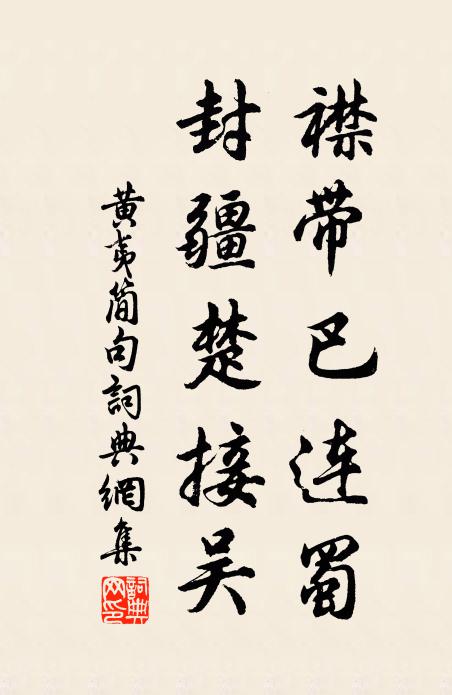 襟带巴连蜀
封疆楚接吴
黄夷简句詞典網集
詞典
网印